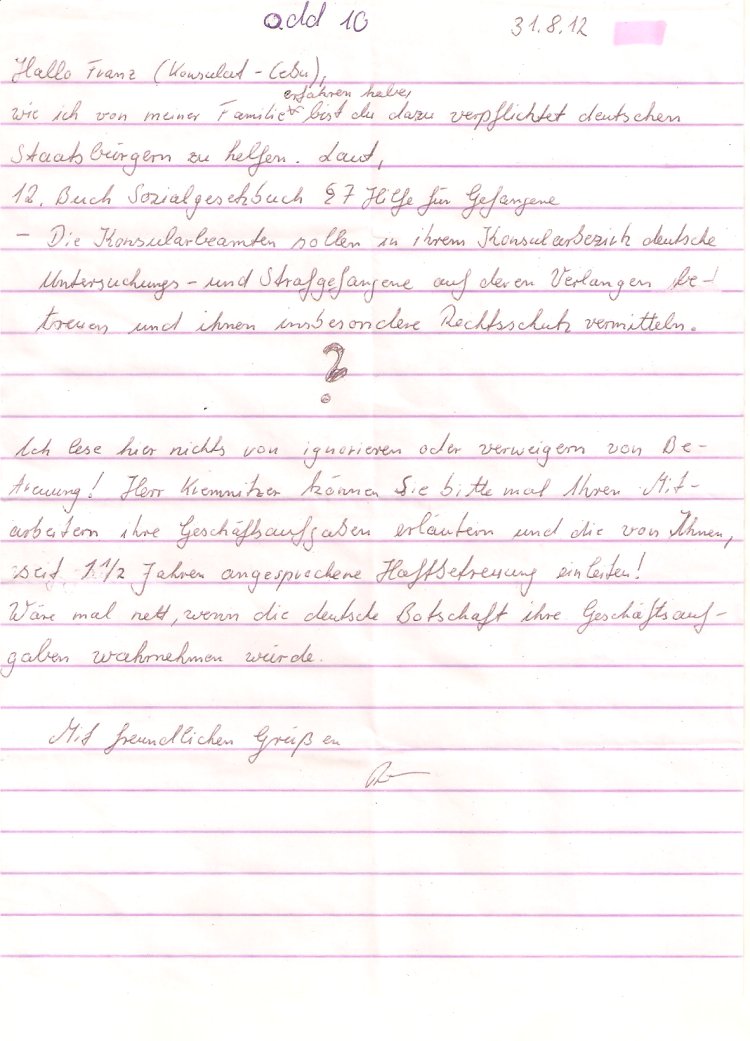 add 10
31.8.12
Hallo Franz (Konsulat - Cebu),
erfahren habe,
wie ich von meiner Familie * bist du dazu verpflichtet deutschen
Staatsbürgern zu helfen. Laut,
12. Buch Sozialgesetzbuch § 7 Hilfe für Gefangene
- Die Konsularbeamten sollen in ihrem Konsularbezirk deutsche
Untersuchungs - und Strafgefangene auf deren Verlangen be-
treuen und ihnen insbesondere Rechtsschutz vermitteln.
?
Ich lese hier nichts von ignorieren oder verweigern von Be-
treuung! Herr Kiemnitzer können Sie bitte mal Ihren Mit-
arbeitern ihre Geschäftsaufgaben erläutern und die von Ihnen,
seit 1 1/2 Jahren angesprochene Haftbetreuung einleiten!
Wäre mal nett, wenn die deutsche Botschaft ihre Geschäftsauf-
gaben wahrnehmen würde.
Mit freundlichen Grüßen